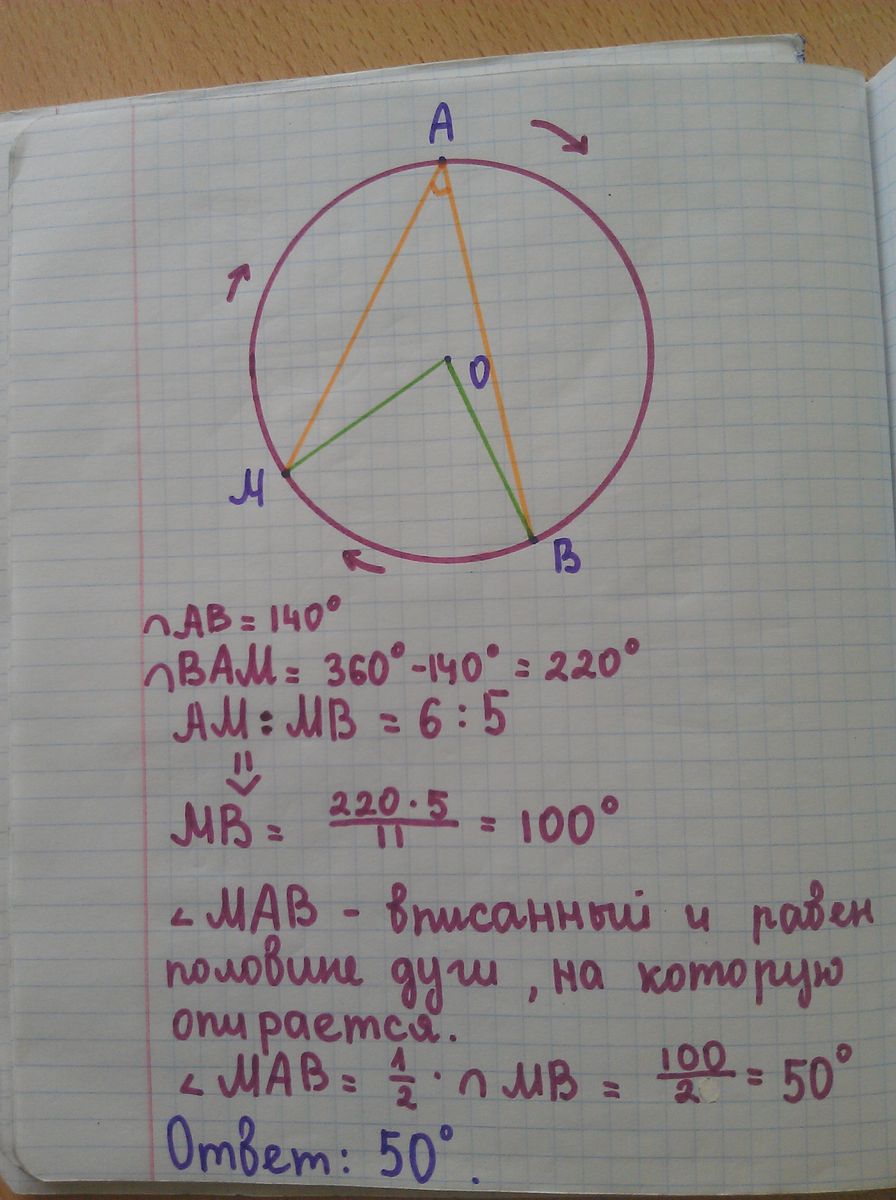 A
O
M
B
∩AB = 140°
∩BAM = 360° - 140° = 220°
AM : MB = 6 : 5
⇓
MB = 220 · 5 / 11 = 100°
∠MAB - вписанный и равен
половине дуги, на которую
опирается.
∠MAB = 1/2 · ∩MB = 100/2 = 50°
Ответ: 50°.